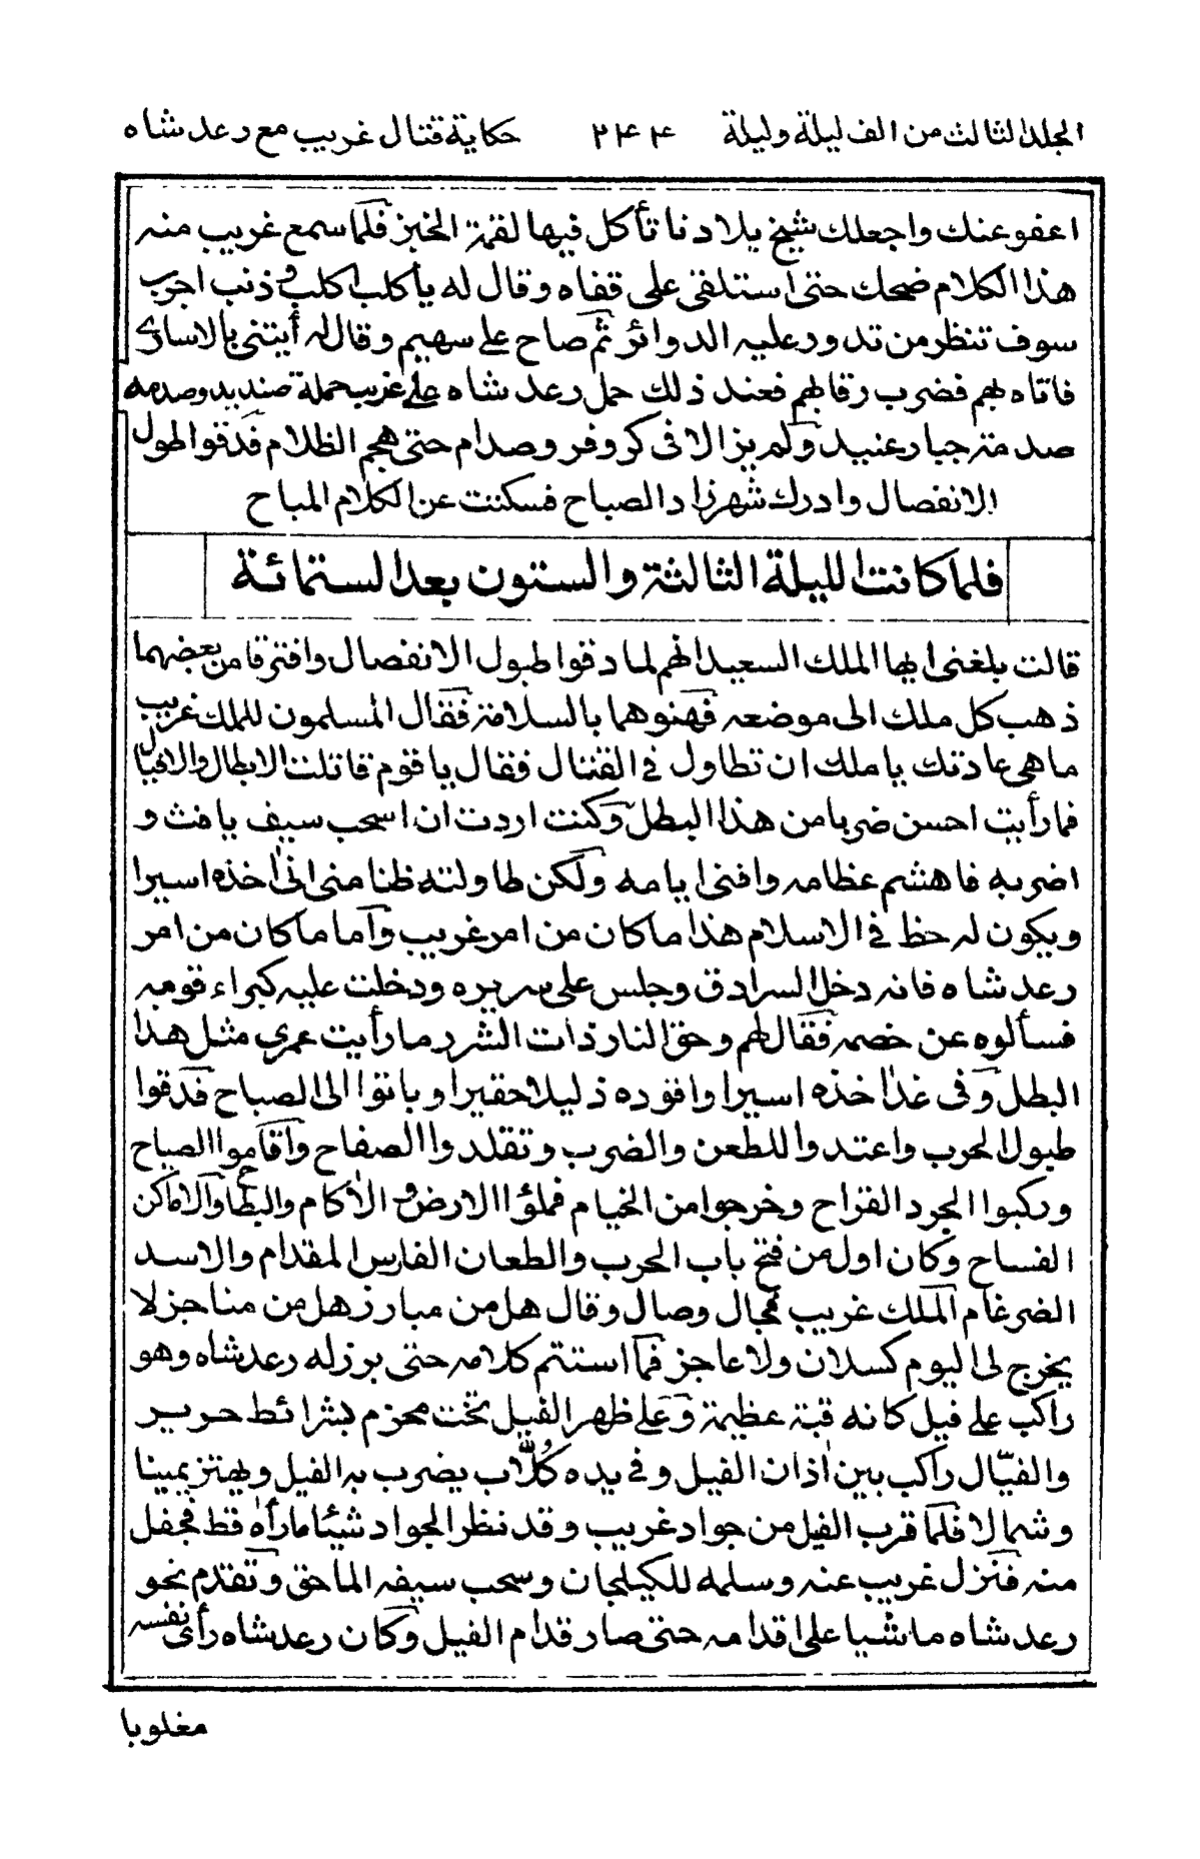 المجلد الثالث من الف ليلة وليلة ٢٤٤ حكاية قتال غريب مع رعد شاه
اعفو عنك واجعلك شيخ بلادنا تأكل فيها لقمة الخبز فلما سمع غريب منه
هذا الكلام ضحك حتى استلقى على قفاه وقال له يا كلب اكلب وذنب اجرب
سوف تنظر من تدور عليه الدوائر ثم صاح على سهيم وقال له أيتنى بالاسارى
فاتاه بهم فضرب رقابهم فعند ذلك حمل رعد شاه على غريب حملة صنديد وصدمه
صدمة جبار عنيد ولم يزالا فى كر وفر وصدام حتى هجم الظلام فدقوا طبول
الانفصال وادرك شهرزاد الصباح فسكتت عن الكلام المباح
فلما كانت الليلة الثالثة والستون بعد الستمائة
قالت بلغنى ايها الملك السعيد انهم لما دقوا طبول الانفصال وافترقا من بعضهما
ذهب كل ملك الى موضعه فهنوهما بالسلامة فقال المسلمون للملك غريب
ما هى عادتك يا ملك ان تطاول فى القتال فقال يا قوم قاتلت الابطال والاقيال
فما رأيت احسن ضربا من هذا البطل وكنت اردت ان اسحب سيف يافث و
اضربه فاهشم عظامه وافنى ايامه ولكن طاولته ظنا منى انى اخذه اسيرا
ويكون له حظ فى الاسلام هذا ما كان من امر غريب وأما ما كان من امر
رعد شاه فانه دخل السرادق وجلس على سريره ودخلت عليه كبراء قومه
فسألوه عن خصمه فقال لهم وحق النار ذات الشرر ما رأيت عمري مثل هذا
البطل وفى غد اخذه اسيرا واقوده ذليلا حقيرا وباتوا الى الصباح فدقوا
طبول الحرب واعتدوا للطعن والضرب وتقلدوا الصفاح وأقاموا الصياح
وركبوا الجرد القراح وخرجوا من الخيام فملؤا الارض والاكام والبطاح والاماكن
الفساح وكان اول من فتح باب الحرب والطعان الفارس المقدام والاسد
الضرغام الملك غريب فجال وصال وقال هل من مبارز هل من مناجز لا
يخرج لى اليوم كسلان ولا عاجز فما استتم كلامه حتى برز له رعد شاه وهو
راكب على فيل كانه قبة عظيمة وعلى ظهر الفيل تخت محزم بشرائط حرير
والفيّال راكب بين اذان الفيل وفى يده كُلّاب يضرب به الفيل ويهتز يمينا
وشمالا فلما قرب الفيل من جواد غريب وقد نظر الجواد شيئا ما رأه قط فجفل
منه فنزل غريب عنه وسلمه للكيلجان وسحب سيفه الماحق وتقدم نحو
رعد شاه ماشيا على اقدامه حتى صار قدام الفيل وكان رعد شاه رأى نفسه
مغلوبا